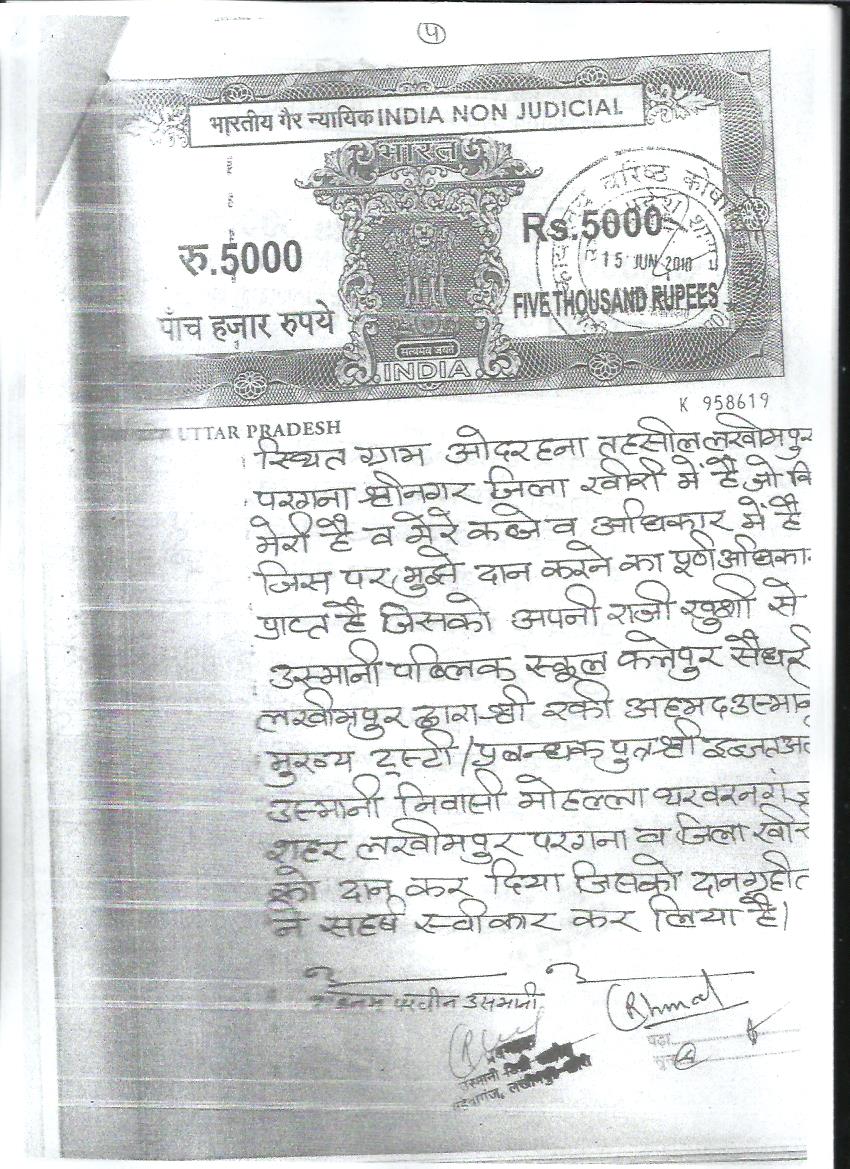 ५
भारतीय गैर न्यायिक INDIA NON JUDICIAL
भारत
रु.5000
Rs.5000
15 JUN 2010
पाँच हजार रुपये
FIVE THOUSAND RUPEES
सत्यमेव जयते
INDIA
K 958619
UTTAR PRADESH
स्थित ग्राम ओदरहना तहसील लखीमपुर
परगना श्रीनगर जिला खीरी में है, जो कि
मेरी है व मेरे कब्जे व अधिकार में है
जिस पर मुझे दान करने का पूर्ण अधिका
प्राप्त है जिसको अपनी राजी खुशी से
उस्मानी पब्लिक स्कूल सैधरी
लखीमपुर द्वारा श्री रफी अहमद उस्मानी
मुख्य ट्रस्टी / प्रबन्धक पुत्र श्री इज्जत अल
उस्मानी निवासी मोहल्ला थरवरनगंज
शहर लखीमपुर परगना व जिला खीरी
को दान कर दिया जिसको दानग्रहीत
ने सहर्ष स्वीकार कर लिया है।
परवीन उसमानी
Rhmad